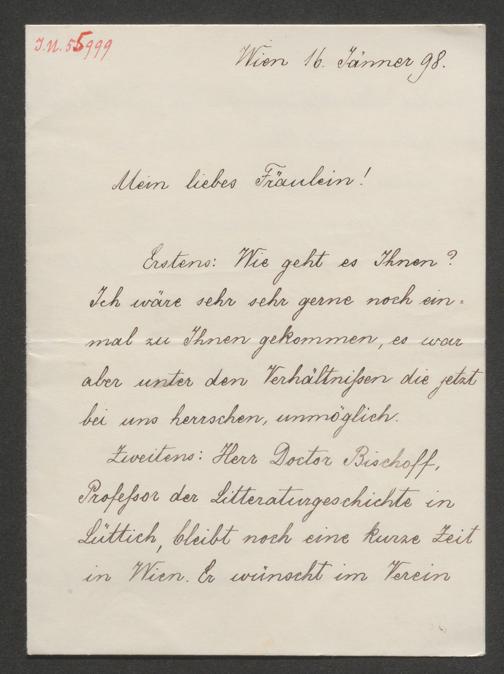 J.N. 55999
Wien 16. Jänner 98.
Mein liebes Fräulein!
Erstens: Wie geht es Ihnen?
Ich wäre sehr sehr gerne noch ein=
mal zu Ihnen gekommen, es war
aber unter den Verhältnißen die jetzt
bei uns herrschen, unmöglich.
Zweitens: Herr Doctor Bischoff,
Profeßor der Litteraturgeschichte in
Lüttich, bleibt noch eine kurze Zeit
in Wien. Er wünscht im Verein